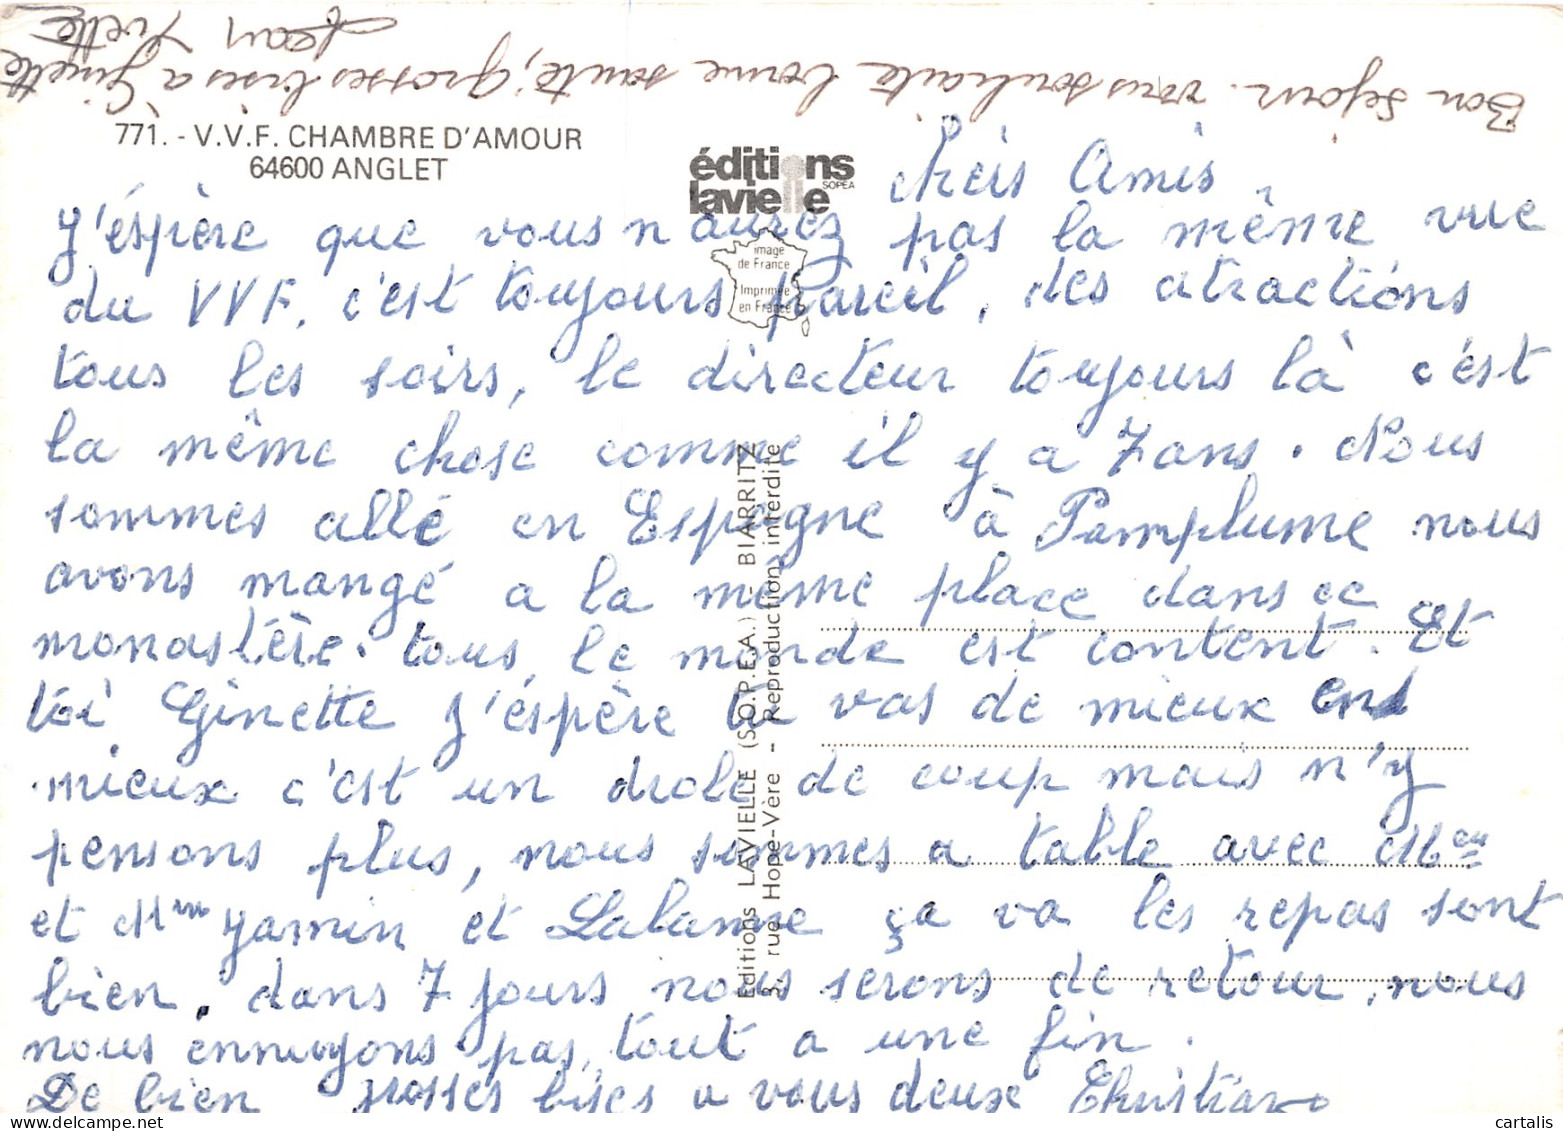 Bon Sejour. vous souhaite bonne santé, Grosses bises a Ginette
Jean Yvette
771. - V.V.F. CHAMBRE D'AMOUR
64600 ANGLET
éditions
lavielle
SOPEA
image
de France
Imprimée
en France
Editions LAVIELLE (S.O.P.E.A.) - BIARRITZ
3, rue Hope-Vère - Reproduction interdite
chers Amis.
J'éspère que vous n'aurez pas la même vue
du VVF. c'est toujours pareil, des atractions
tous les soirs, le directeur toujours là c'est
la même chose comme il y a 7 ans. Nous
sommes allé en Espagne à Pamplume nous
avons mangé a la même place dans ce
monastère. tous le monde est content. Et
toi Ginette J'éspère tu vas de mieux en
mieux c'est un drole de coup mais n'y
pensons plus, nous sommes a table avec
et Mme Yamin et Lalanne ça va les repas sont
bien. dans 7 jours nous serons de retour, nous
nous ennuyons pas, tout a une fin.
De bien grosses bises a vous deux
cartalis